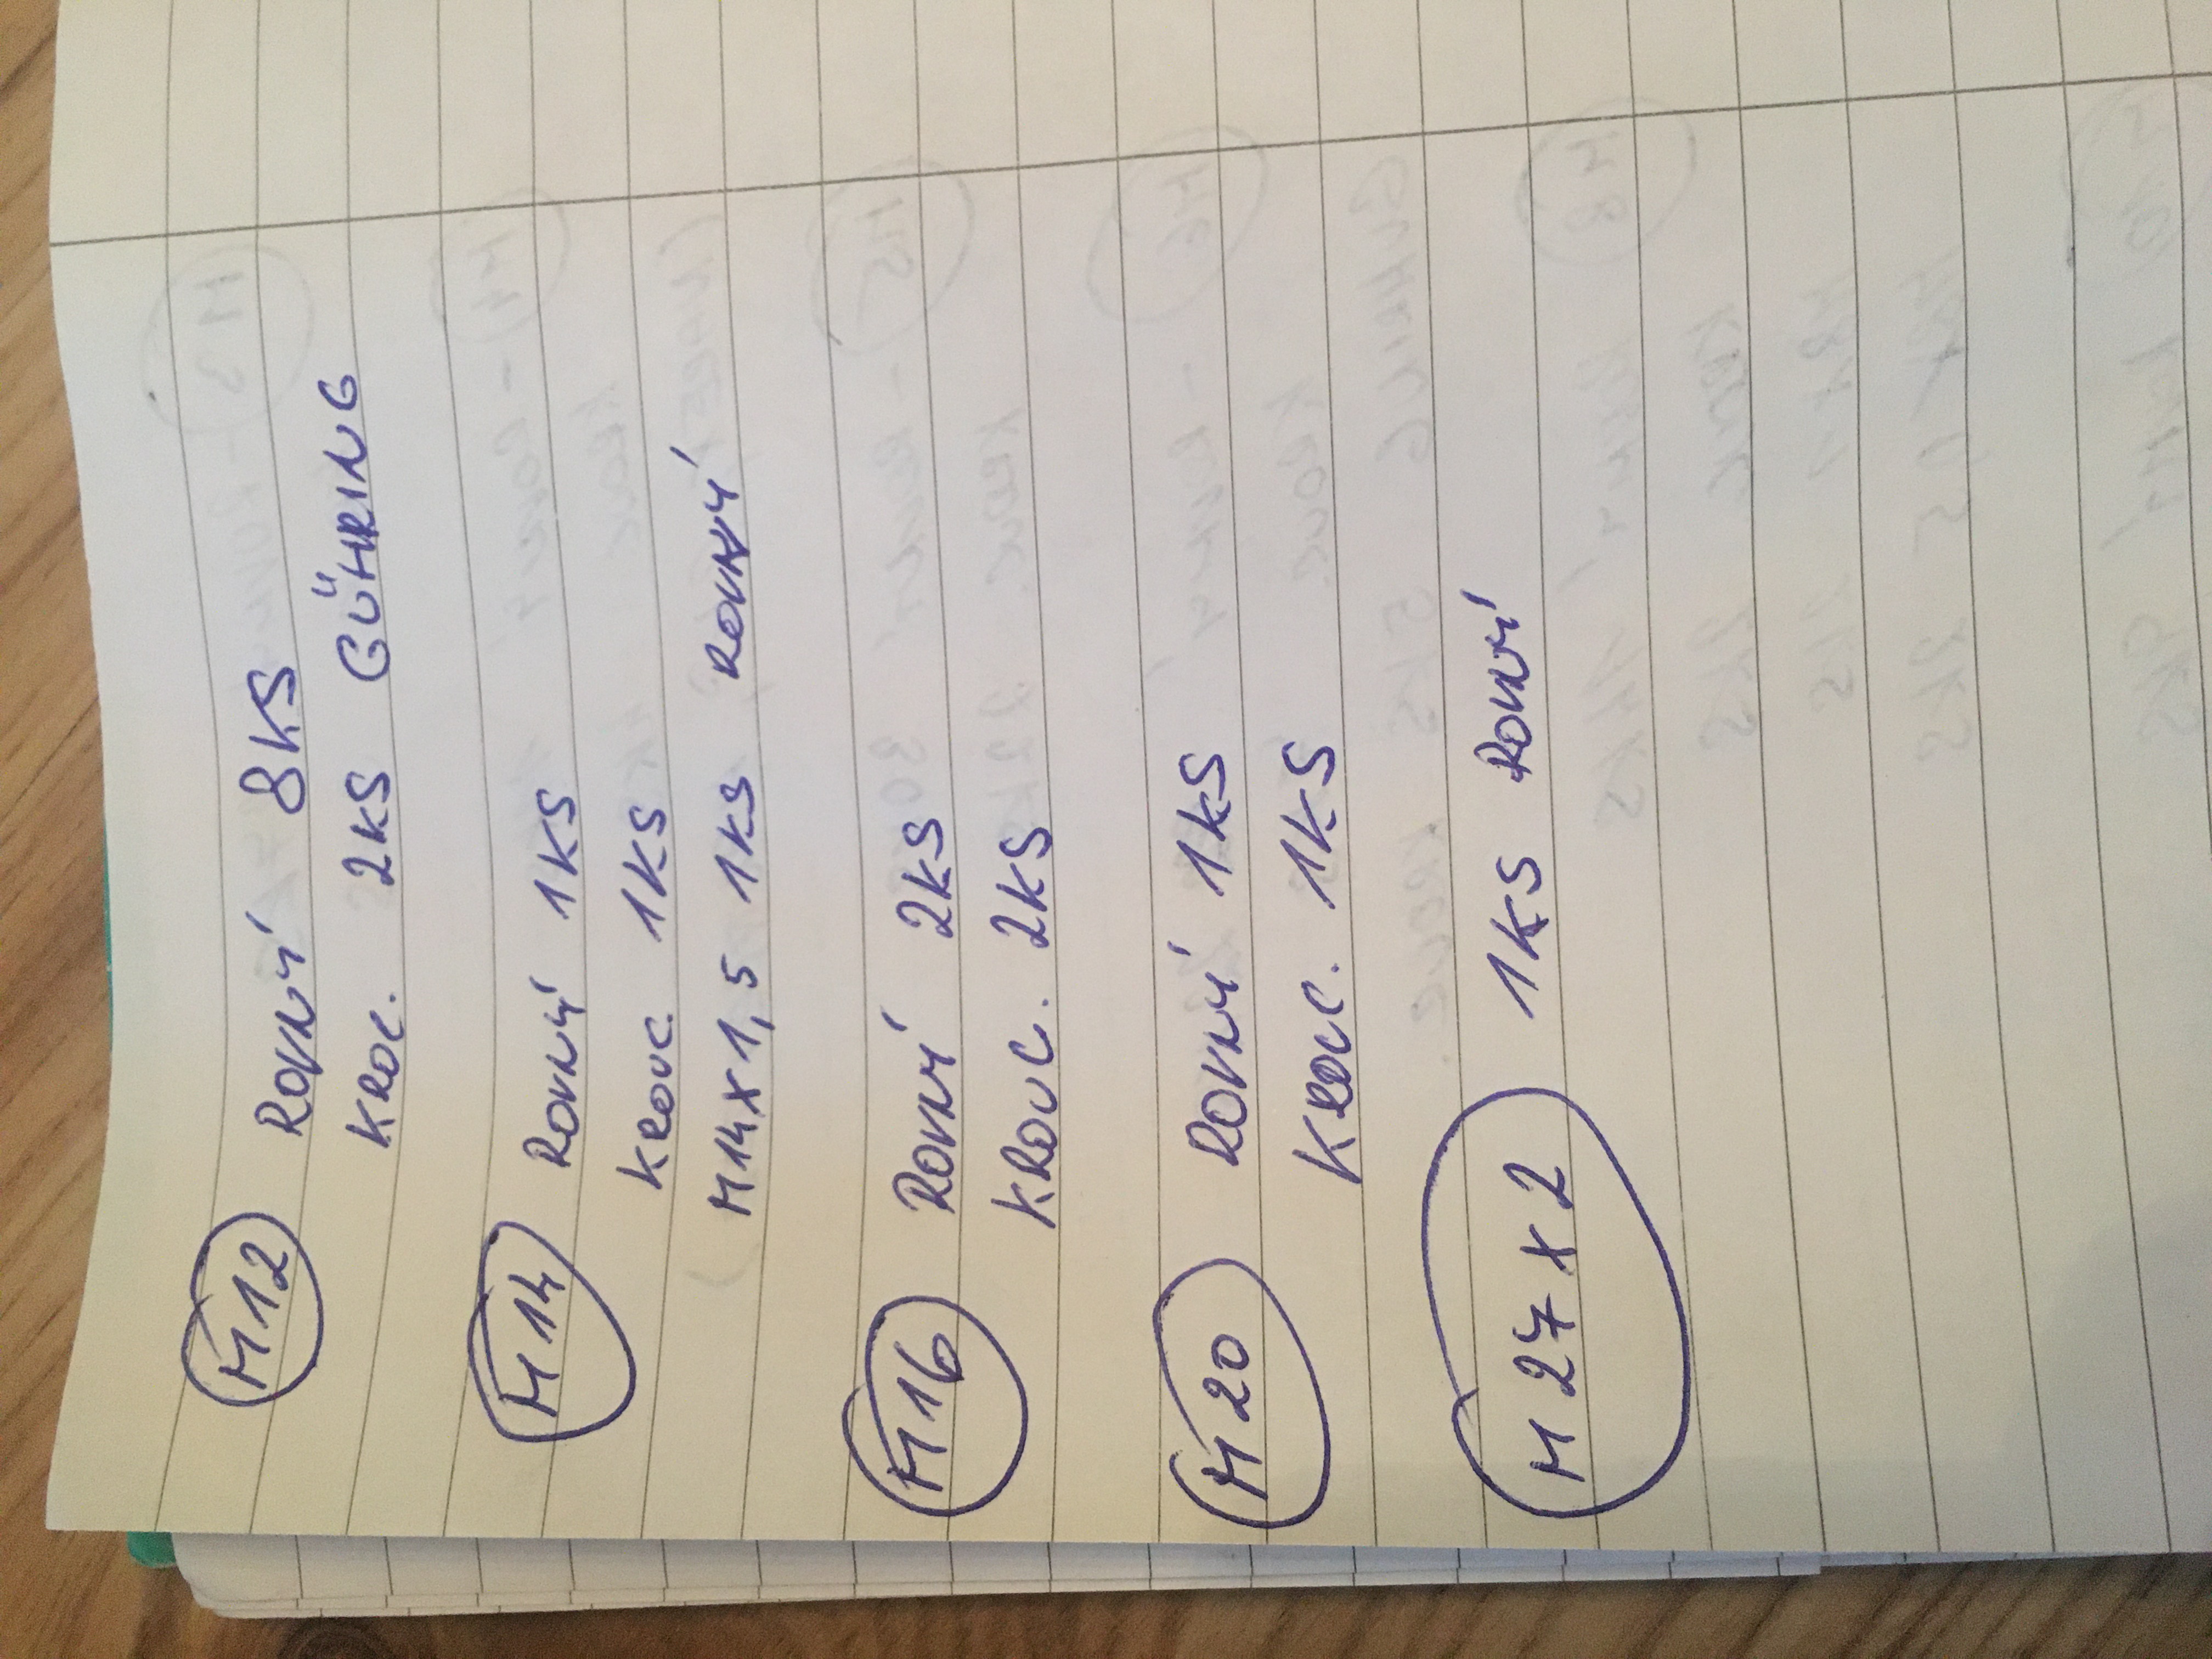 M12 ROVNÝ 8KS
KROC. 2KS GÜHRING
M14 ROVNÝ 1KS
KROUC. 1KS
M14x1,5 1KS ROVNÝ
M16 ROVNÝ 2KS
KROUC. 2KS
M20 ROVNÝ 1KS
KROUC. 1KS
M27x2 1KS ROVNÝ